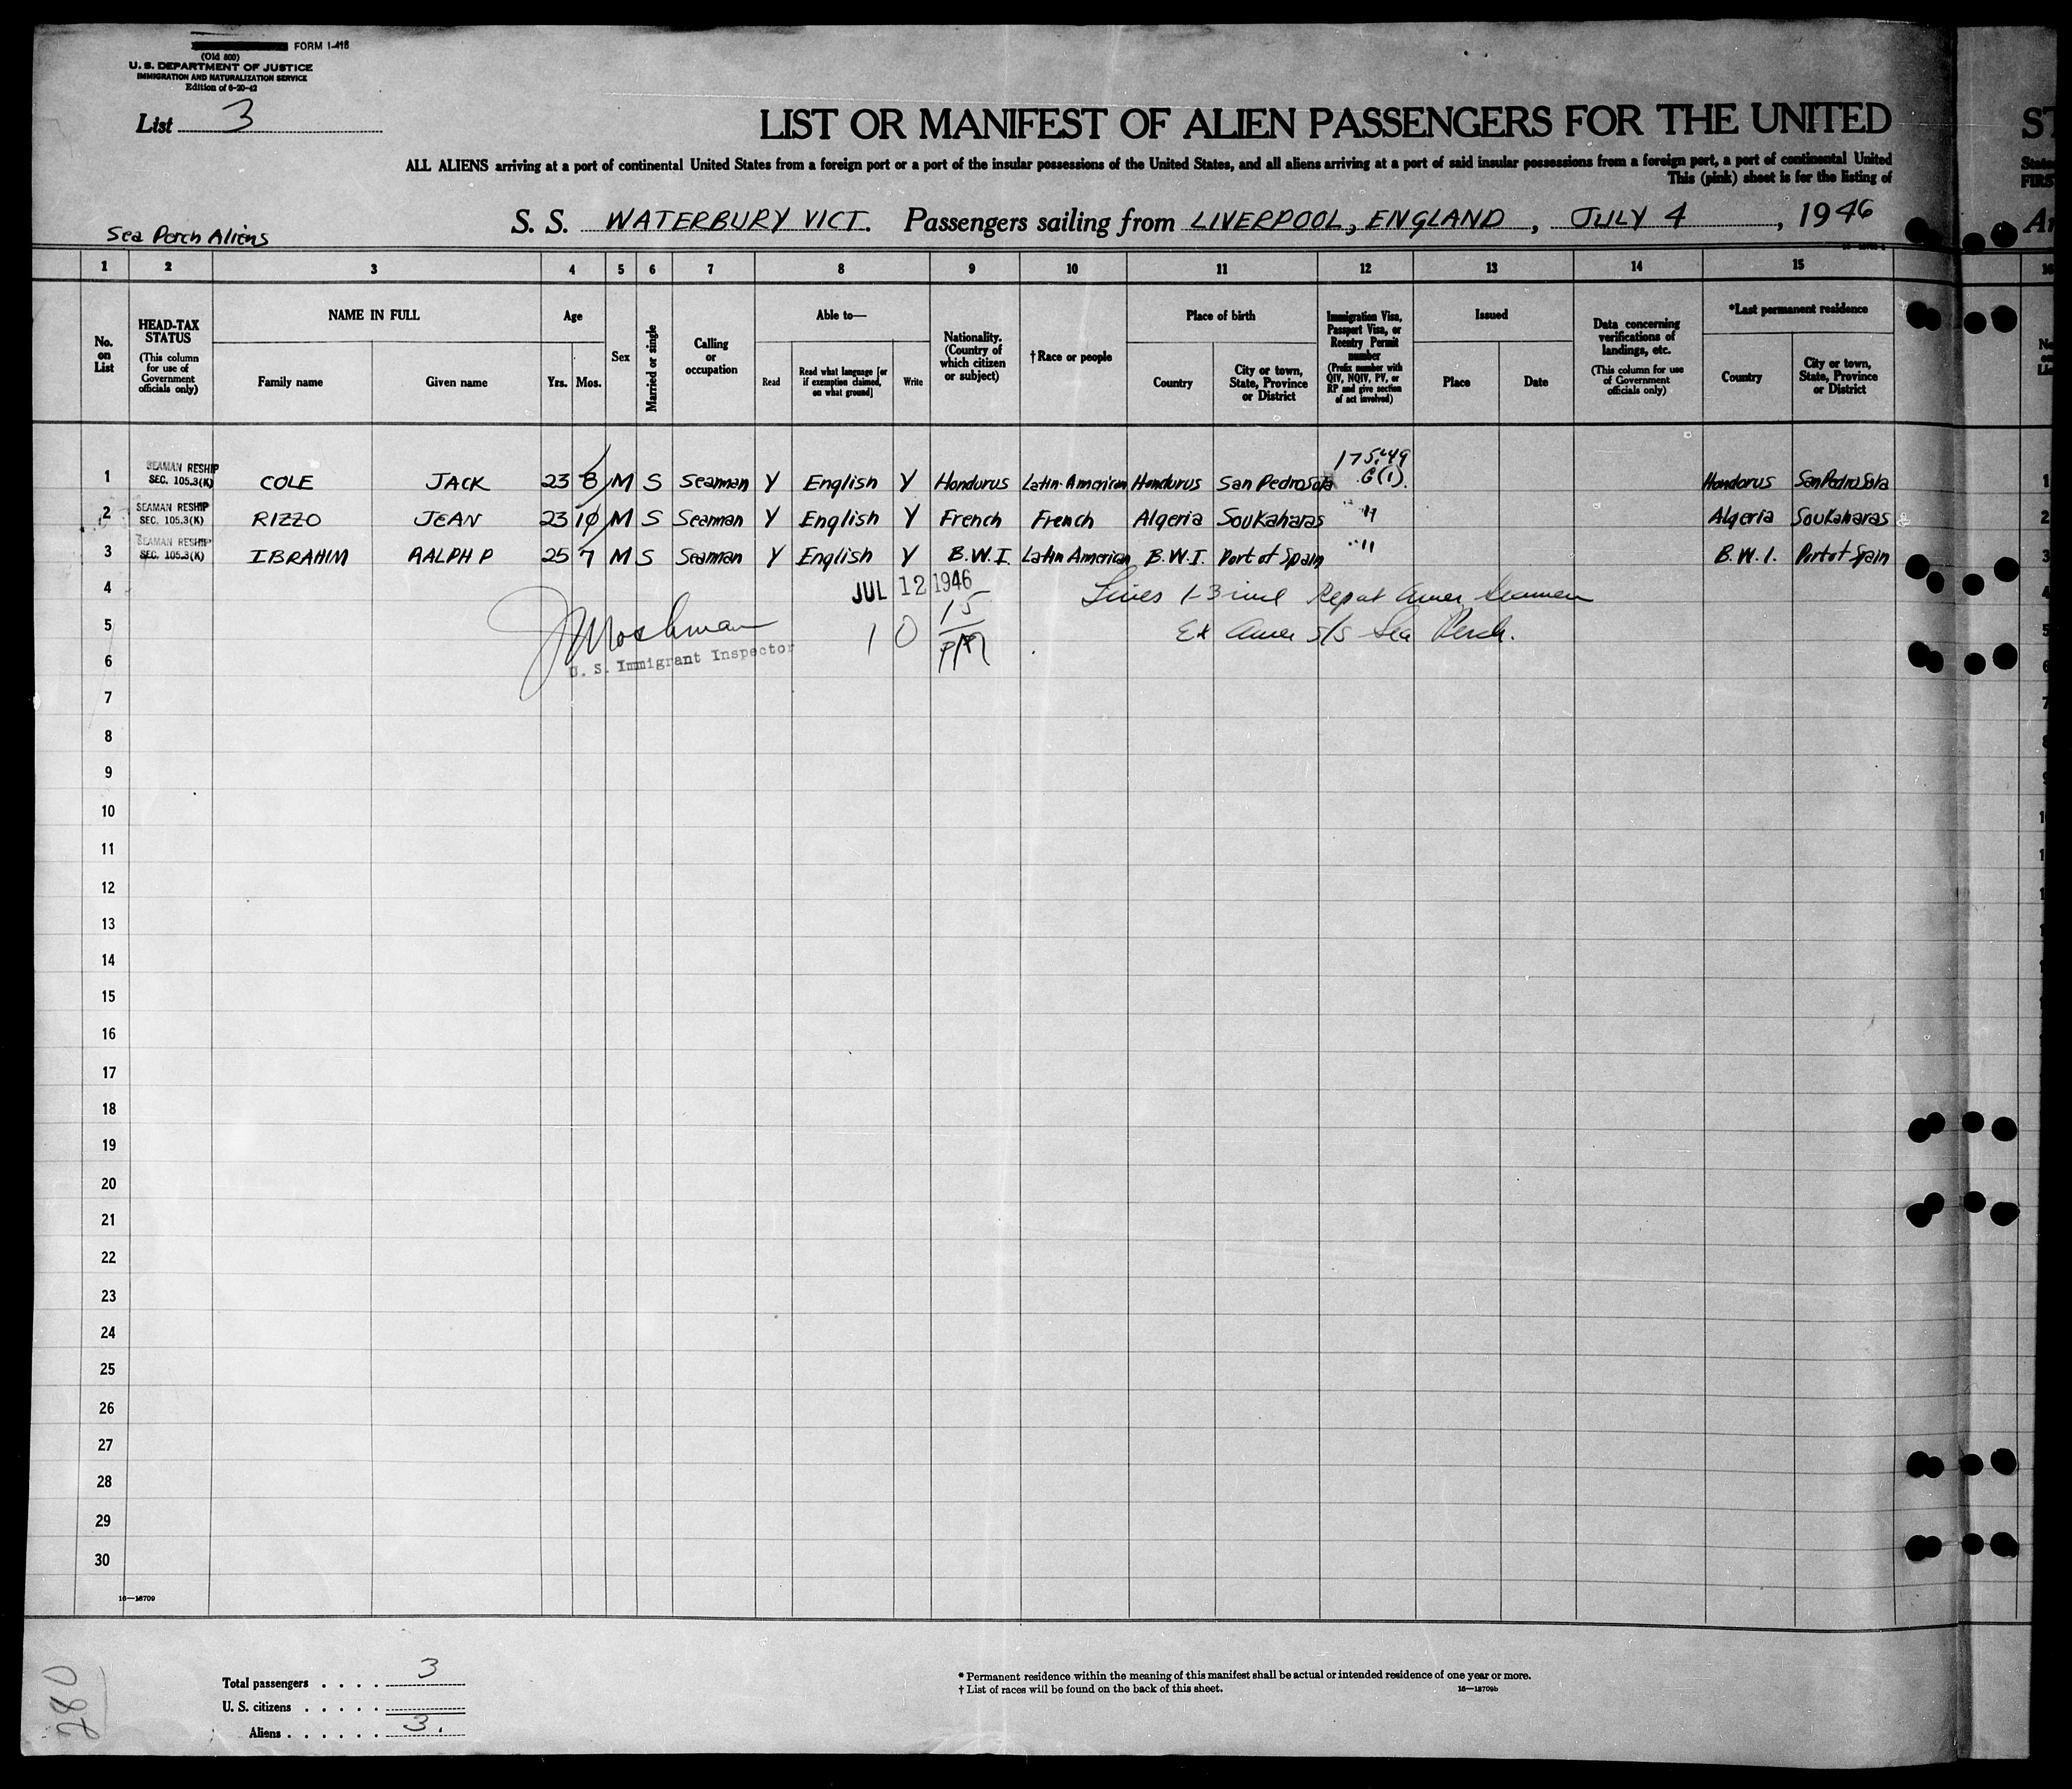 FORM I-418
(Old 500)
U. S. DEPARTMENT OF JUSTICE
IMMIGRATION AND NATURALIZATION SERVICE
Edition of 6-20-42
List 3
LIST OR MANIFEST OF ALIEN PASSENGERS FOR THE UNITED
ALL ALIENS arriving at a port of continental United States from a foreign port or a port of the insular possessions of the United States, and all aliens arriving at a port of said insular possessions from a foreign port, a port of continental United
This (pink) sheet is for the listing of
Sea Perch Aliens
S. S. WATERBURY VICT. Passengers sailing from LIVERPOOL, ENGLAND, JULY 4, 1946
1 2 3 4 5 6 7 8 9 10 11 12 13 14 15
No. on List
HEAD-TAX STATUS (This column for use of Government officials only)
NAME IN FULL
Family name Given name
Age
Yrs. Mos.
Sex
Married or single
Calling or occupation
Able to—
Read Read what language [or if exemption claimed, on what ground] Write
Nationality. (Country of which citizen or subject)
†Race or people
Place of birth
Country City or town, State, Province or District
Immigration Visa, Passport Visa, or Reentry Permit number (Prefix number with QIV, NQIV, PV, or RP and give section of act involved)
Issued
Place Date
Data concerning verifications of landings, etc. (This column for use of Government officials only)
*Last permanent residence
Country City or town, State, Province or District
1 SEAMAN RESHIP SEC. 105.3(K) COLE JACK 23 8 M S Seaman Y English Y Hondurus Latin-American Hondurus San Pedro Sola 175.49 G(1). Hondorus San Pedro Sola
2 SEAMAN RESHIP SEC. 105.3(K) RIZZO JEAN 23 10 M S Seaman Y English Y French French Algeria Soukaharas " " Algeria Soukaharas
3 SEAMAN RESHIP SEC. 105.3(K) IBRAHIM RALPH P 25 7 M S Seaman Y English Y B.W.I. Latin American B.W.I. Port of Spain " " B.W.I. Port of Spain
4 JUL 12 1946 Lines 1-3 incl Repat Amer Seamen
5 J Moshman 10 15 PM Ex Amer S/S Sea Perch.
U. S. Immigrant Inspector
6
7
8
9
10
11
12
13
14
15
16
17
18
19
20
21
22
23
24
25
26
27
28
29
30
16—18709
280
Total passengers . . . . 3
U. S. citizens . . . . .
Aliens . . . . . . 3.
* Permanent residence within the meaning of this manifest shall be actual or intended residence of one year or more.
† List of races will be found on the back of this sheet.
16—18709b